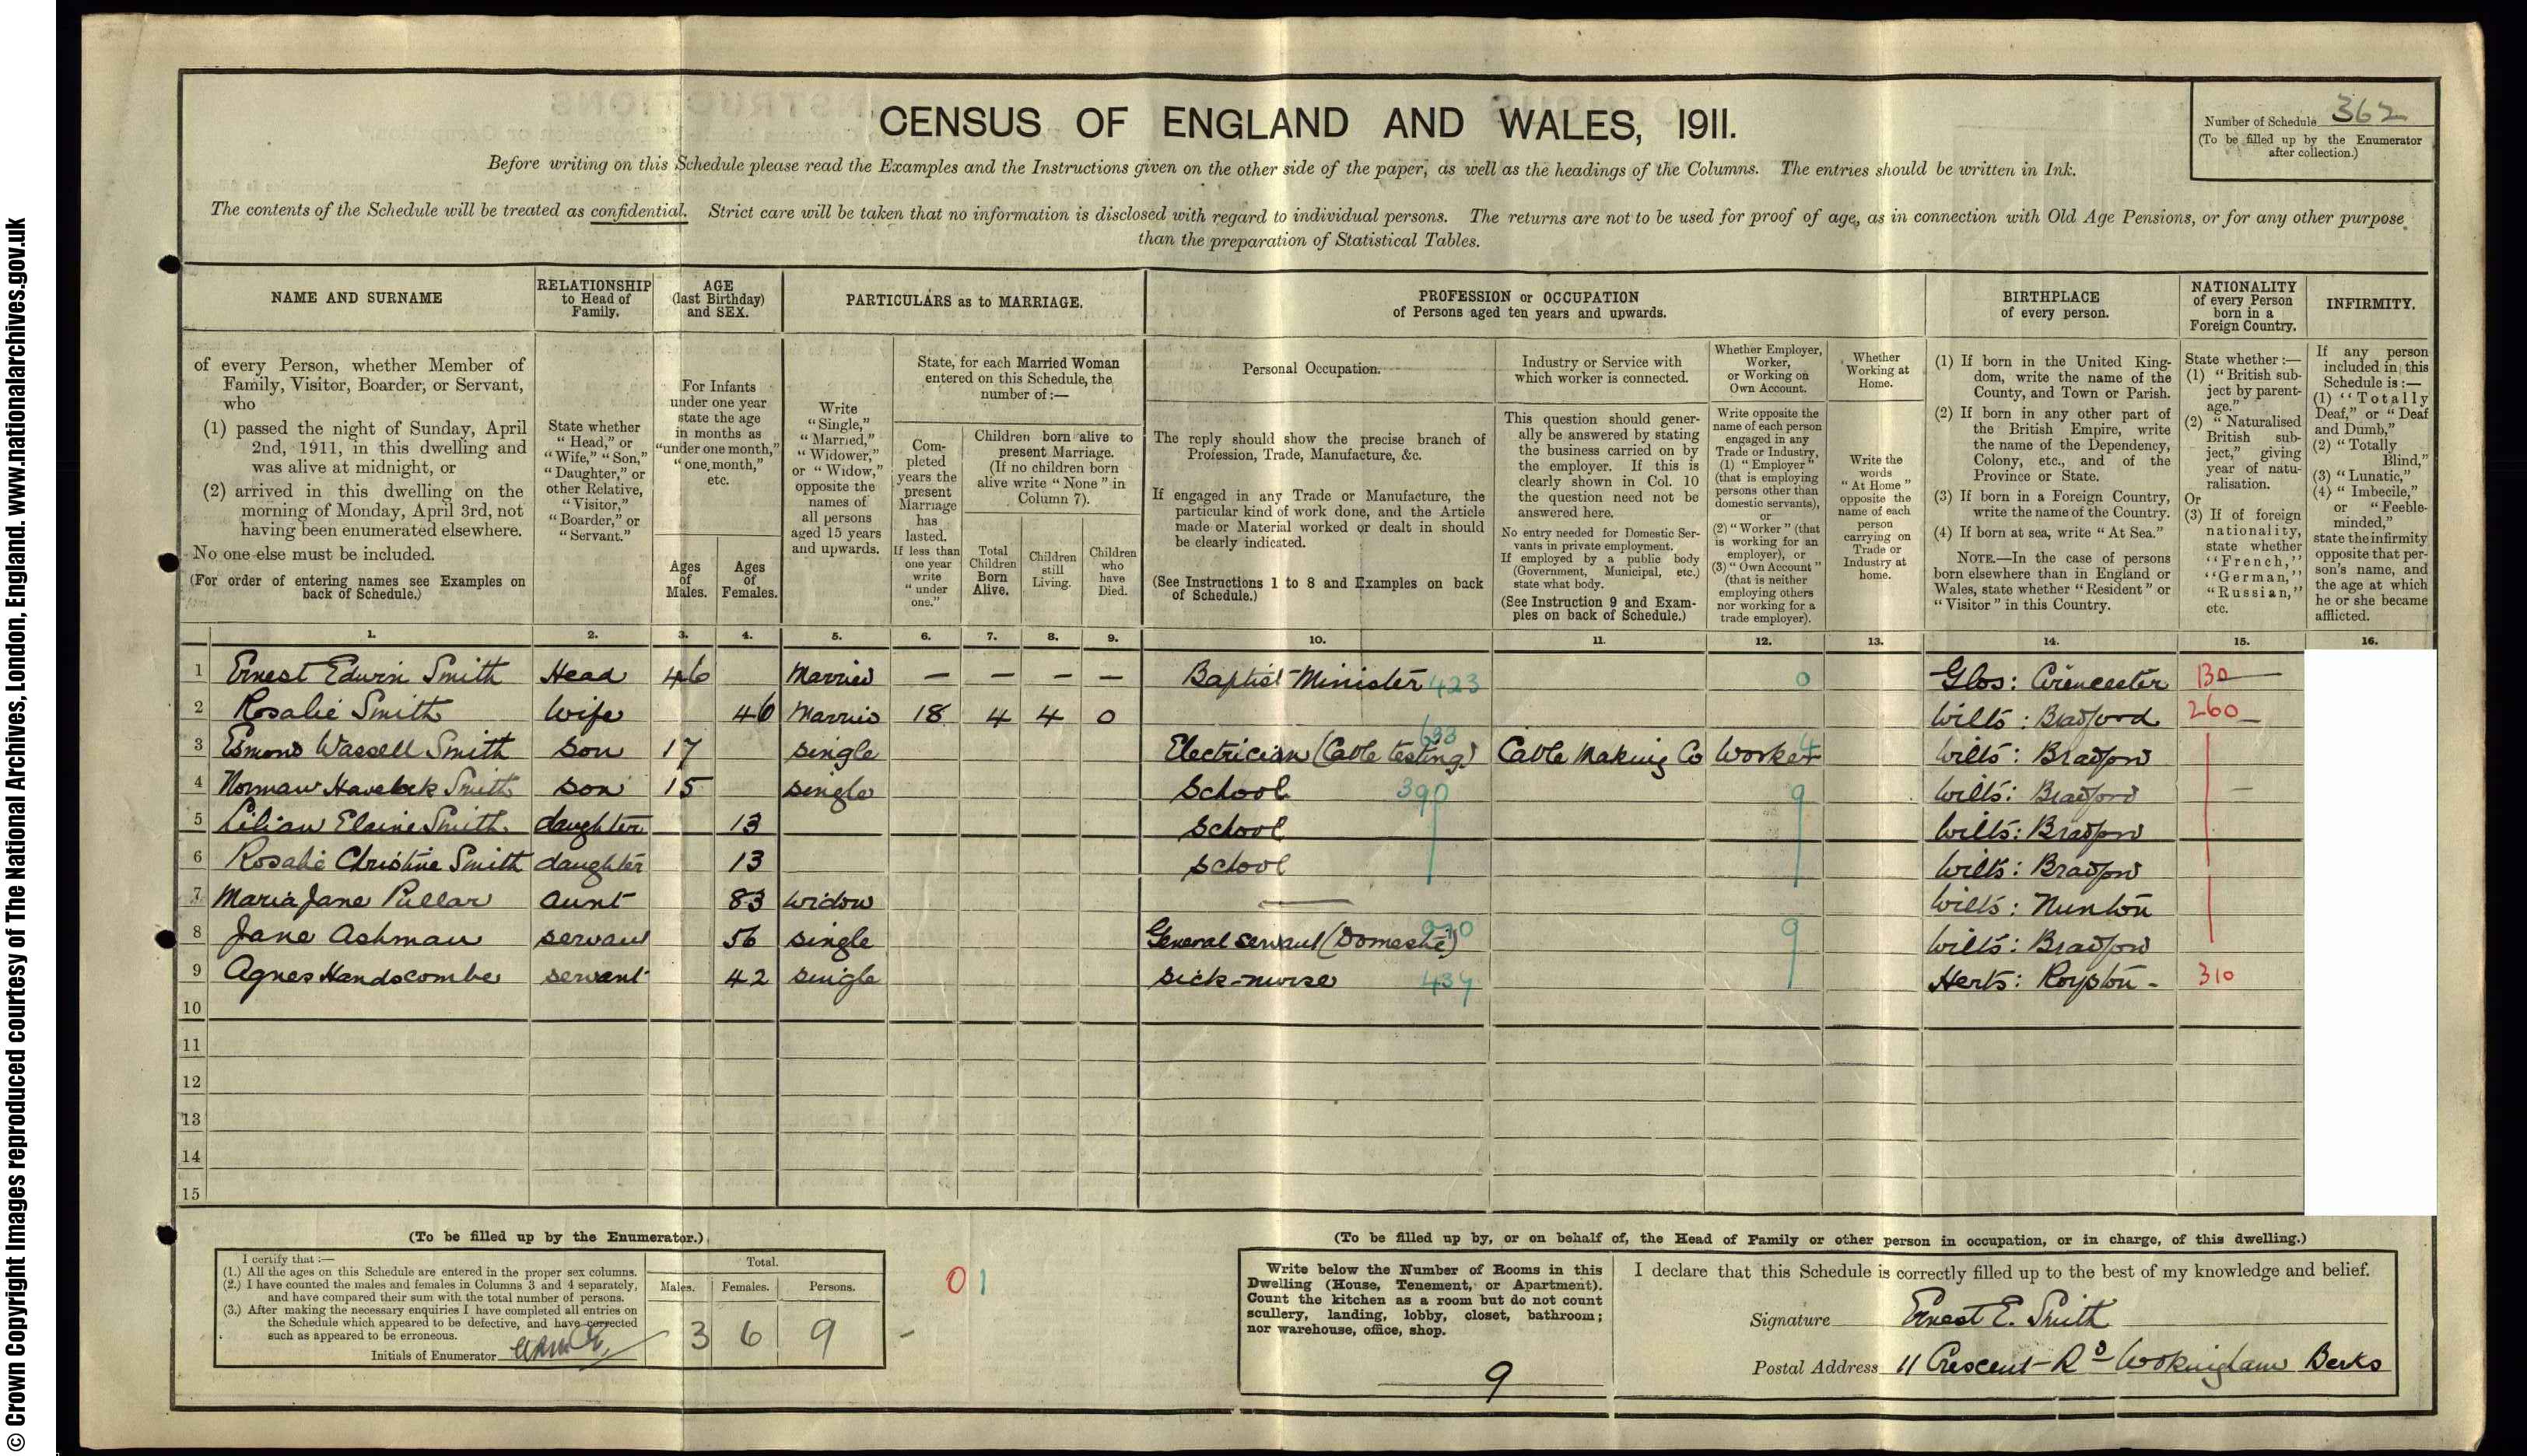 © Crown Copyright Images reproduced courtesy of The National Archives, London, England. www.nationalarchives.gov.uk
CENSUS OF ENGLAND AND WALES, 1911.
Number of Schedule 362
(To be filled up by the Enumerator
after collection.)
Before writing on this Schedule please read the Examples and the Instructions given on the other side of the paper, as well as the headings of the Columns. The entries should be written in Ink.
The contents of the Schedule will be treated as confidential. Strict care will be taken that no information is disclosed with regard to individual persons. The returns are not to be used for proof of age, as in connection with Old Age Pensions, or for any other purpose
than the preparation of Statistical Tables.
NAME AND SURNAME
RELATIONSHIP
to Head of
Family.
AGE
(last Birthday)
and SEX.
PARTICULARS as to MARRIAGE.
PROFESSION or OCCUPATION
of Persons aged ten years and upwards.
BIRTHPLACE
of every person.
NATIONALITY
of every Person
born in a
Foreign Country.
INFIRMITY.
of every Person, whether Member of
Family, Visitor, Boarder, or Servant,
who
(1) passed the night of Sunday, April
2nd, 1911, in this dwelling and
was alive at midnight, or
(2) arrived in this dwelling on the
morning of Monday, April 3rd, not
having been enumerated elsewhere.
No one else must be included.
(For order of entering names see Examples on
back of Schedule.)
State whether
"Head," or
"Wife," "Son,"
"Daughter," or
other Relative,
"Visitor,"
"Boarder," or
"Servant."
For Infants
under one year
state the age
in months as
"under one month,"
"one month,"
etc.
Ages
of
Males.
Ages
of
Females.
Write
"Single,"
"Married,"
"Widower,"
or "Widow,"
opposite the
names of
all persons
aged 15 years
and upwards.
State, for each Married Woman
entered on this Schedule, the
number of:—
Com-
pleted
years the
present
Marriage
has
lasted.
If less than
one year
write
"under
one."
Children born alive to
present Marriage.
(If no children born
alive write "None" in
Column 7).
Total
Children
Born
Alive.
Children
still
Living.
Children
who
have
Died.
Personal Occupation.
The reply should show the precise branch of
Profession, Trade, Manufacture, &c.
If engaged in any Trade or Manufacture, the
particular kind of work done, and the Article
made or Material worked or dealt in should
be clearly indicated.
(See Instructions 1 to 8 and Examples on back
of Schedule.)
Industry or Service with
which worker is connected.
This question should gener-
ally be answered by stating
the business carried on by
the employer. If this is
clearly shown in Col. 10
the question need not be
answered here.
No entry needed for Domestic Ser-
vants in private employment.
If employed by a public body
(Government, Municipal, etc.)
state what body.
(See Instruction 9 and Exam-
ples on back of Schedule.)
Whether Employer,
Worker,
or Working on
Own Account.
Write opposite the
name of each person
engaged in any
Trade or Industry,
(1) "Employer"
(that is employing
persons other than
domestic servants),
or
(2) "Worker" (that
is working for an
employer), or
(3) "Own Account"
(that is neither
employing others
nor working for a
trade employer).
Whether
Working at
Home.
Write the
words
"At Home"
opposite the
name of each
person
carrying on
Trade or
Industry at
home.
(1) If born in the United King-
dom, write the name of the
County, and Town or Parish.
(2) If born in any other part of
the British Empire, write
the name of the Dependency,
Colony, etc., and of the
Province or State.
(3) If born in a Foreign Country,
write the name of the Country.
(4) If born at sea, write "At Sea."
NOTE.—In the case of persons
born elsewhere than in England or
Wales, state whether "Resident" or
"Visitor" in this Country.
State whether:—
(1) "British sub-
ject by parent-
age."
(2) "Naturalised
British sub-
ject," giving
year of natu-
ralisation.
Or
(3) If of foreign
nationality,
state whether
"French,"
"German,"
"Russian,"
etc.
If any person
included in this
Schedule is:—
(1) "Totally
Deaf," or "Deaf
and Dumb,"
(2) "Totally
Blind,"
(3) "Lunatic,"
(4) "Imbecile,"
or "Feeble-
minded,"
state the infirmity
opposite that per-
son's name, and
the age at which
he or she became
afflicted.
1. 2. 3. 4. 5. 6. 7. 8. 9. 10. 11. 12. 13. 14. 15. 16.
1 Ernest Edwin Smith Head 46 Married — — — — Baptist Minister 423 0 Glos: Cirencester 130
2 Rosalie Smith Wife 46 Married 18 4 4 0 Wilts: Bradford 260
3 Esmond Wassell Smith Son 17 Single Electrician (Cable testing) 633 Cable Making Co Worker Wilts: Bradford
4 Norman Havelock Smith Son 15 Single School 390 9 Wilts: Bradford
5 Lilian Elaine Smith daughter 13 School Wilts: Bradford
6 Rosalie Christine Smith daughter 13 School Wilts: Bradford
7 Maria Jane Pullar Aunt 83 Widow — Wilts: Nunton
8 Jane Ashman Servant 56 Single General Servant (Domestic) 9 Wilts: Bradford
9 Agnes Handscombe Servant 42 Single Sick-nurse 437 Herts: Royston 310
10
11
12
13
14
15
(To be filled up by the Enumerator.)
I certify that:—
(1.) All the ages on this Schedule are entered in the proper sex columns.
(2.) I have counted the males and females in Columns 3 and 4 separately,
and have compared their sum with the total number of persons.
(3.) After making the necessary enquiries I have completed all entries on
the Schedule which appeared to be defective, and have corrected
such as appeared to be erroneous.
Initials of Enumerator
Total.
Males. Females. Persons.
3 6 9
01
(To be filled up by, or on behalf of, the Head of Family or other person in occupation, or in charge, of this dwelling.)
Write below the Number of Rooms in this
Dwelling (House, Tenement, or Apartment).
Count the kitchen as a room but do not count
scullery, landing, lobby, closet, bathroom;
nor warehouse, office, shop.
9
I declare that this Schedule is correctly filled up to the best of my knowledge and belief.
Signature Ernest E. Smith
Postal Address 11 Crescent Rd Wokingham Berks